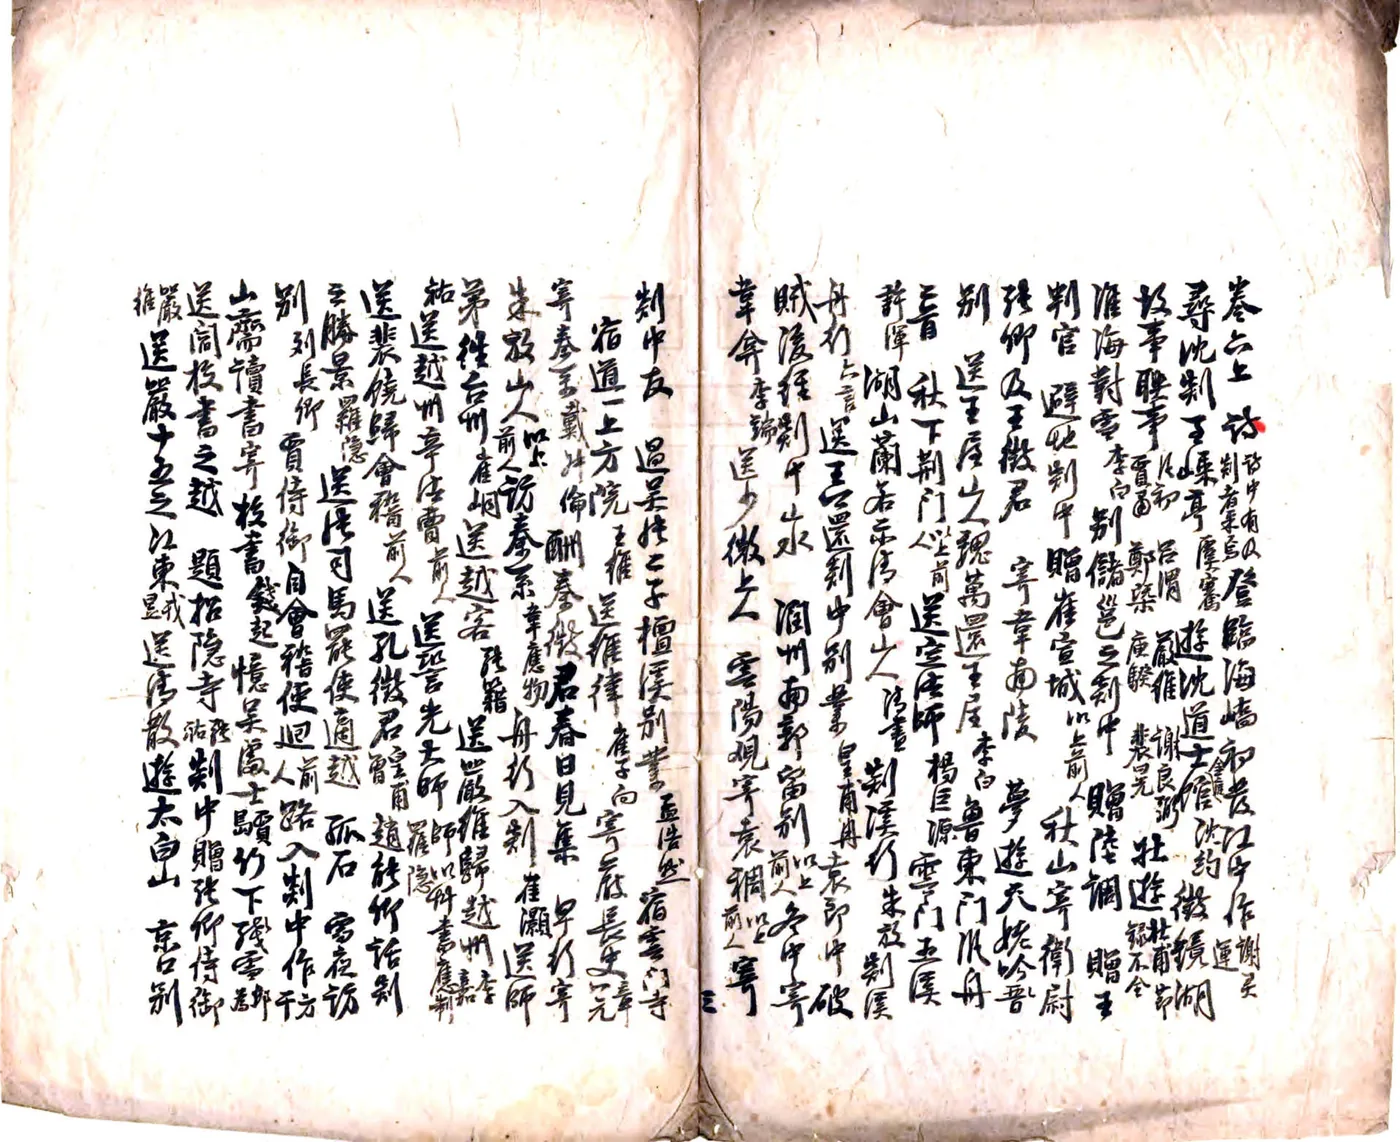 卷六上 詩 詩中有及剡者集烏 登臨海嶠初發江中作 謝灵運
尋沈剡至嵊亭 虞騫 遊沈道士館 沈約 徵鏡湖
故事聯事 賈肅 呂渭 鄭槩 嚴維 庾騤 謝良弼 裴晃 壯遊 杜甫節錄不全
淮海對雪 李白 别儲邕之剡中 贈陸調 贈王
判官 避地剡中贈崔宣城 以上前人 秋山寄衛尉
張卿及王徵君 寄韋南陵 夢遊天姥吟留
别 送王屋山人魏萬還王屋 李白 魯東門汎舟
二首 秋下荆門 以上前人 送定法師 楊巨源 雲門五溪
許渾 湖山蘭若示清會山人 清晝 剡溪行 朱放 剡溪
舟行 六言 送王公還剡中别業 皇甫冉 袁郎中破
賊後經剡中山水 潤州南郭留别 以上前人 冬中寄
韋弇 李端 送少微上人 雲陽观寄袁稠 以上前人 寄
三
剡中友 過吴張二子檀溪别業 孟浩然 宿雲门寺
宿道一上方院 王維 送維律 崔子向 寄薛長史 章八元
寄秦系 戴叔倫 酬秦徵君春日見集 早行寄
朱放山人 以上前人 訪秦系 韋應物 舟行入剡 崔灝 送師
弟徃台州 崔峒 送越客 張籍 送嚴維歸越州 李嘉
祐 送越州辛法曹 前人 送䛒光大師 師以艸書應制 羅隐
送裴饒歸會稽 前人 送孔徵君 皇甫曾 趙能卿話剡
之勝景 羅隐 送張司馬罷使適越 孤石 雪夜訪
别 刘長卿 賈侍御自會稽使迴 前人 路入剡中作 方干
山齋讀書寄校書 錢起 憶吴處士 驥竹下殘雪 郎爲
送閻校書之越 題招隐寺 張祜 剡中贈張卿侍御
嚴維 送嚴十五之江東 戎昱 送清散遊太白山 京口别